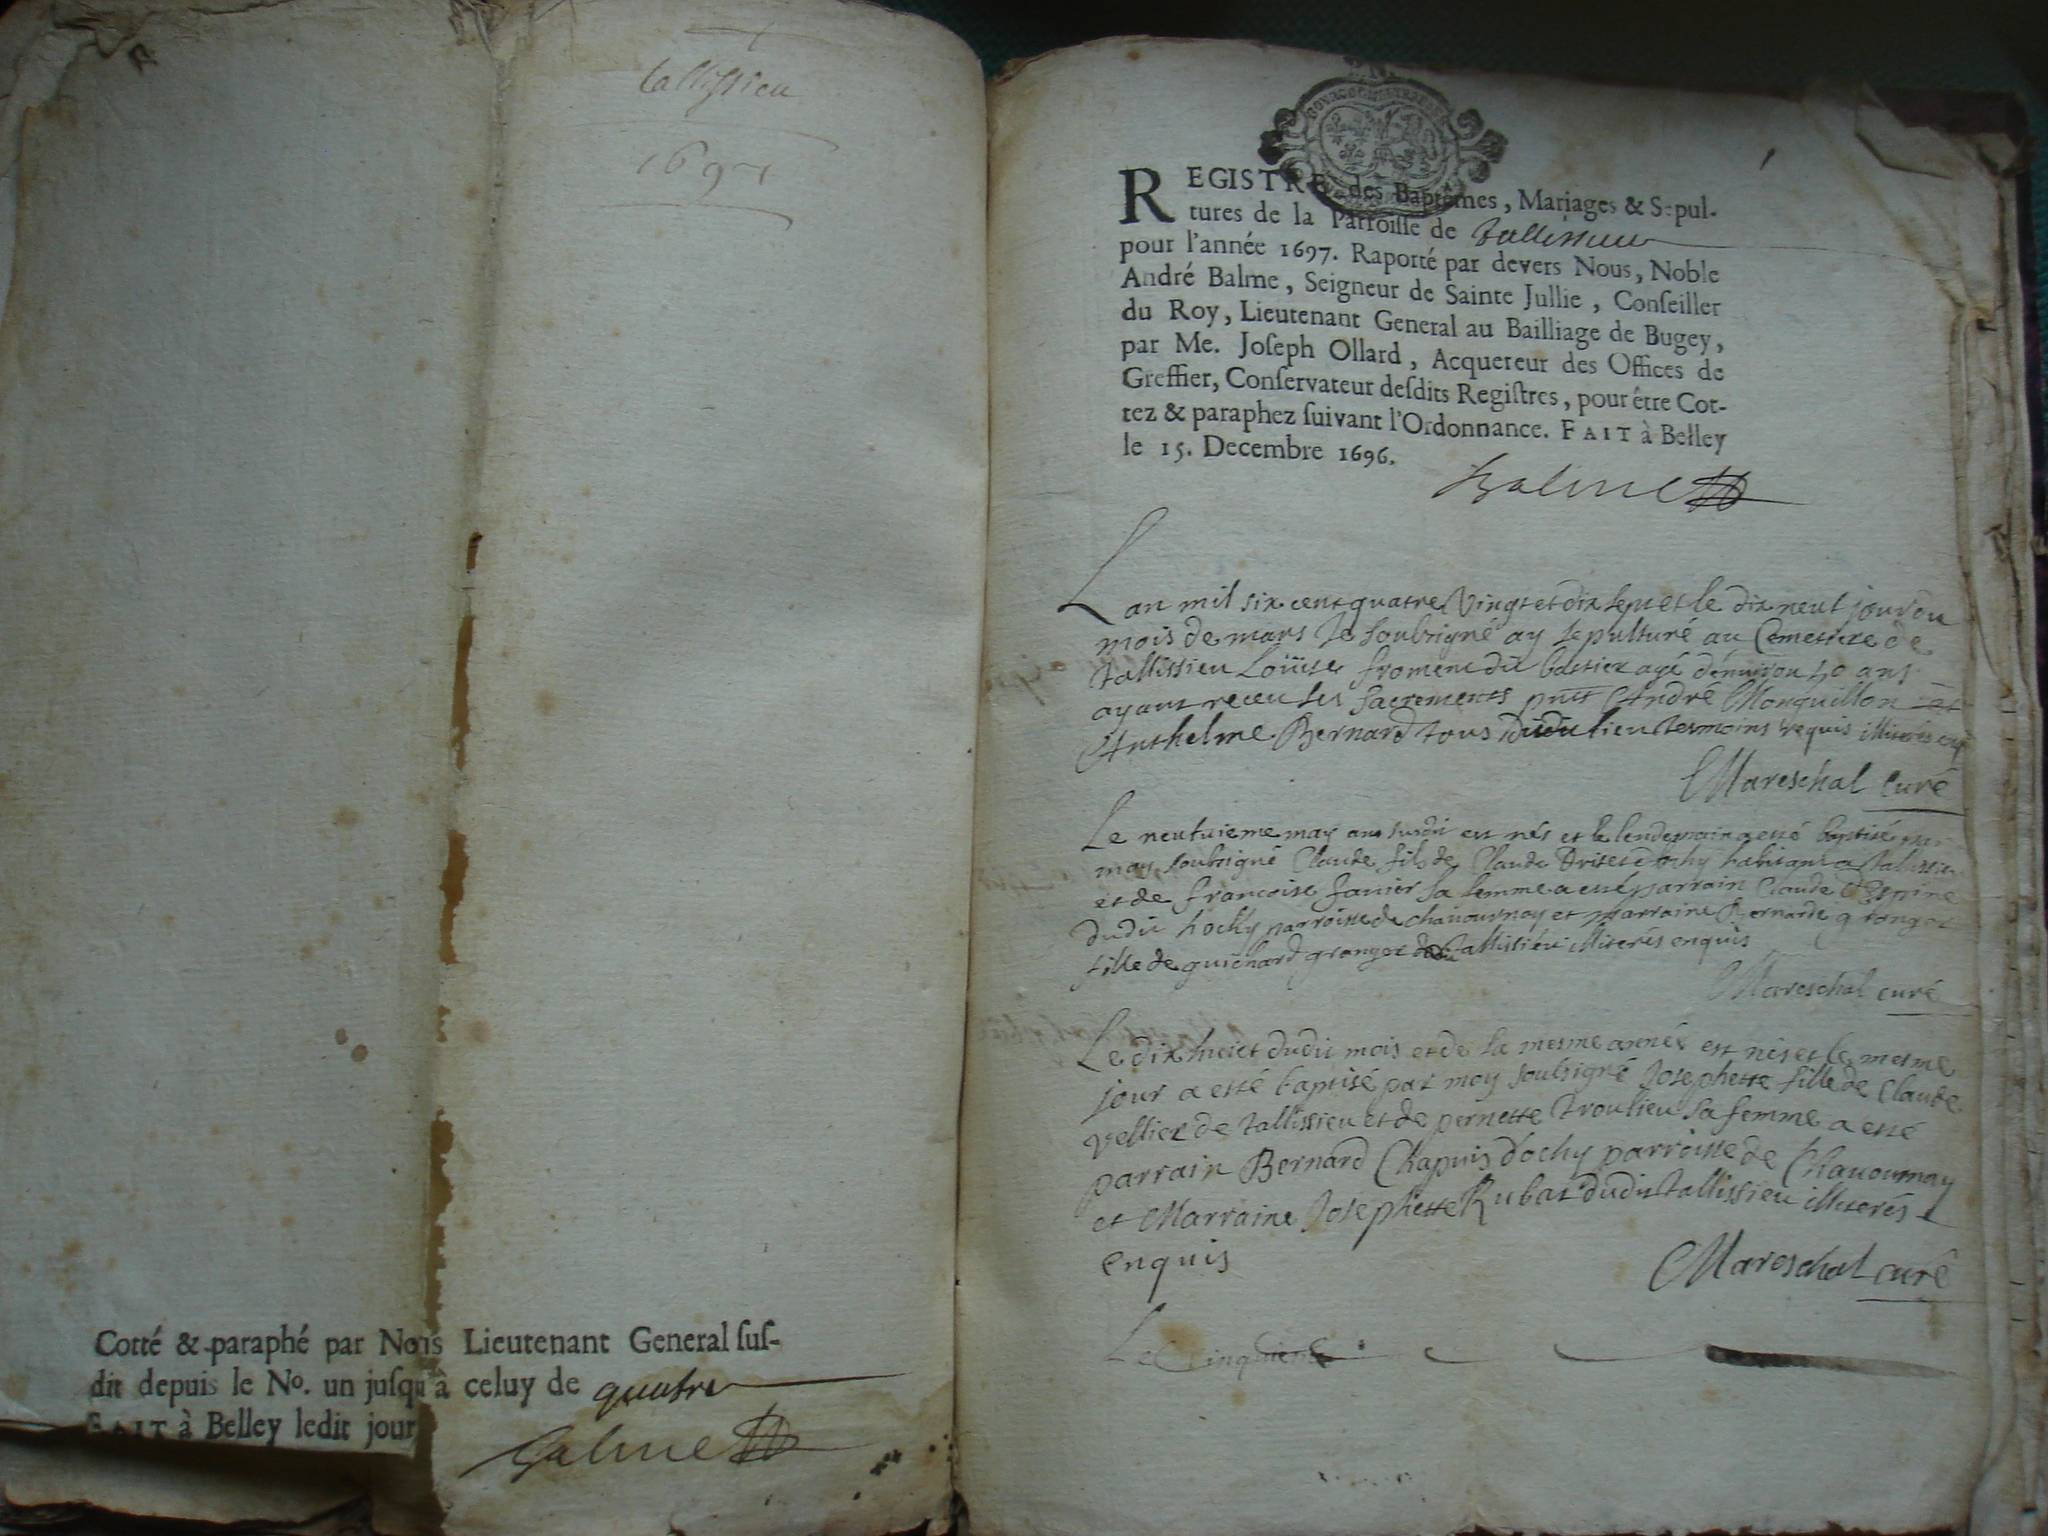 tallissieu
1697
Cotté & paraphé par Nous Lieutenant General suf-
dit depuis le No. un jusqu'à celuy de quatre
FAIT à Belley ledit jour
Balme
REGISTRE des Baptêmes, Mariages & Sepul-
tures de la Parroisse de tallissieu
pour l'année 1697. Raporté par devers Nous, Noble
André Balme, Seigneur de Sainte Jullie, Conseiller
du Roy, Lieutenant General au Bailliage de Bugey,
par Me. Joseph Ollard, Acquereur des Offices de
Greffier, Conservateur desdits Registres, pour être Cot-
tez & paraphez suivant l'Ordonnance. FAIT à Belley
le 15. Decembre 1696.
Balme
Lan mil six cent quatre vingt et dix sept et le dix neuf jour du
mois de mars Je soubsigné ay sepulturé au Cemetiere de
tallissieu Loüise froment du agé d'environ 50 ans
ayant receu les sacrements pnt André Monquillon et
Anthelme Bernard tous dudit lieu tesmoins requis illiterés enq
Mareschal Curé
Le neufuieme may an susdit est nés et le lendemain a esté baptisé par
moy soubsigné Claude fils de Claude d'ochy habitant a tallissieu
et de francoise favier sa femme a esté parrain Claude
dudit hochy parroisse de chavournay et marraine Bernarde granger
fille de guichard granger de tallissieu illiterés enquis
Mareschal curé
Le dix huict dudit mois et de la mesme année est nés et le mesme
jour a esté baptisé par moy soubsigné Josephette fille de Claude
vellier de tallissieu et de pernette troulieu sa femme a esté
parrain Bernard Chapuis d'ochy parroisse de Chavournay
et Marraine Josephette Rubat dudit tallissieu illiterés
enquis
Mareschal curé
Le Cinquieme